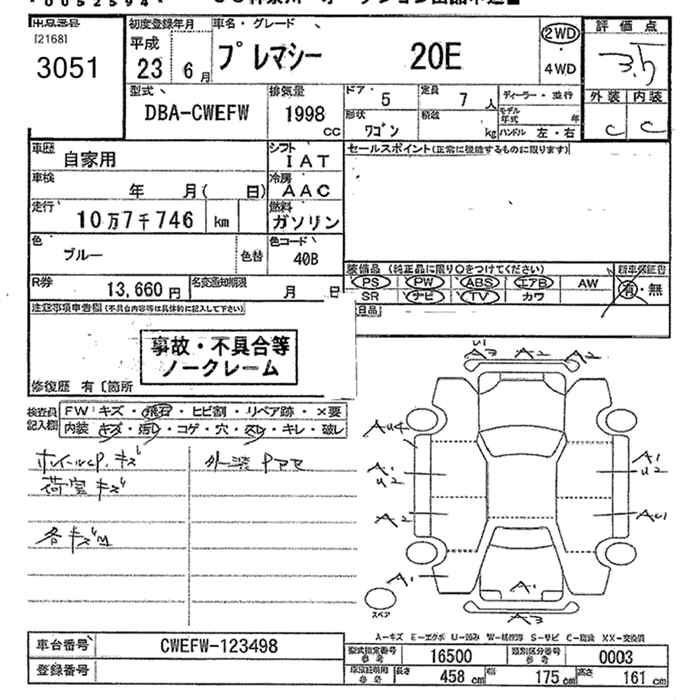 0052594
出品番号 初度登録年月 車名・グレード 評価点
[2168]
3051
平成 23 6月
プレマシー 20E
2WD
・
4WD
3.5
型式
DBA-CWEFW
排気量
1998 CC
ドア・ 5
定員 7 人
ディーラー・並行
形状 ワゴン
積載 kg
モデル年式 年
ハンドル 左・右
外装 内装
C C
車歴 自家用
シフト IAT
セールスポイント(正常に機能するものに限ります)
車検 年 月( 日)
冷房 AAC
走行 10万7千746 km
燃料 ガソリン
色 ブルー 色替
色コード 40B
装備品 (純正品に限り○をつけてください) 新車保証書
PS PW ABS エアB AW
SR ナビ TV カワ
有・無
R券 13,660円
名変通知期限 月 日
注意事項申告欄(不具合内容等は具体的に記入して下さい)
事故・不具合等
ノークレーム
修復歴 有〔箇所
検査員記入欄 FW:キズ・飛石・ヒビ割・リペア跡・×要
内装 キズ・汚レ・コゲ・穴・スレ・キレ・破レ
ホイールcp.キズ
荷室キズ
各キズ
A3 A2 A2
AU4
A1 U2
A2
A1
A1 U2
AU1
A1
A3
スペア
A-キズ E-エクボ U-凹み W-補修跡 S-サビ C-腐蝕 XX-交換済
車台番号 CWEFW-123498
登録番号
型式指定番号 参考 16500
類別区分番号 参考 0003
長さ 458 cm 幅 175 cm 高さ 161 cm